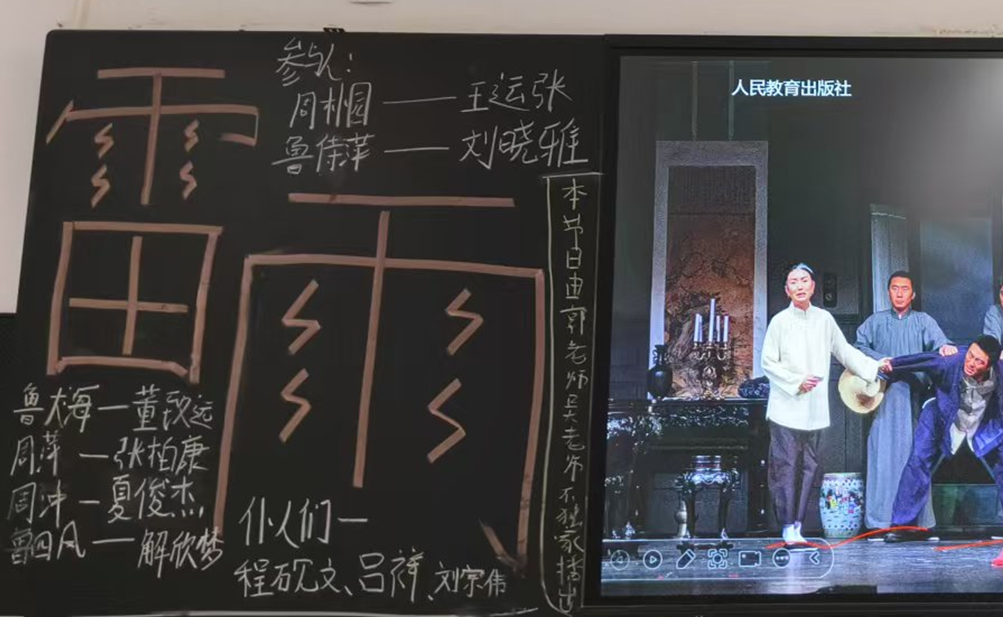 雷雨
参与人:
周朴园——王运张
鲁侍萍——刘晓雅
鲁大海—董致远
周萍—张柏康
周冲—夏俊杰
鲁四凤—解欣梦
仆人们—
程砚文、吕祥、刘宗伟
本节目由郭老师吴老师不独家播出
人民教育出版社